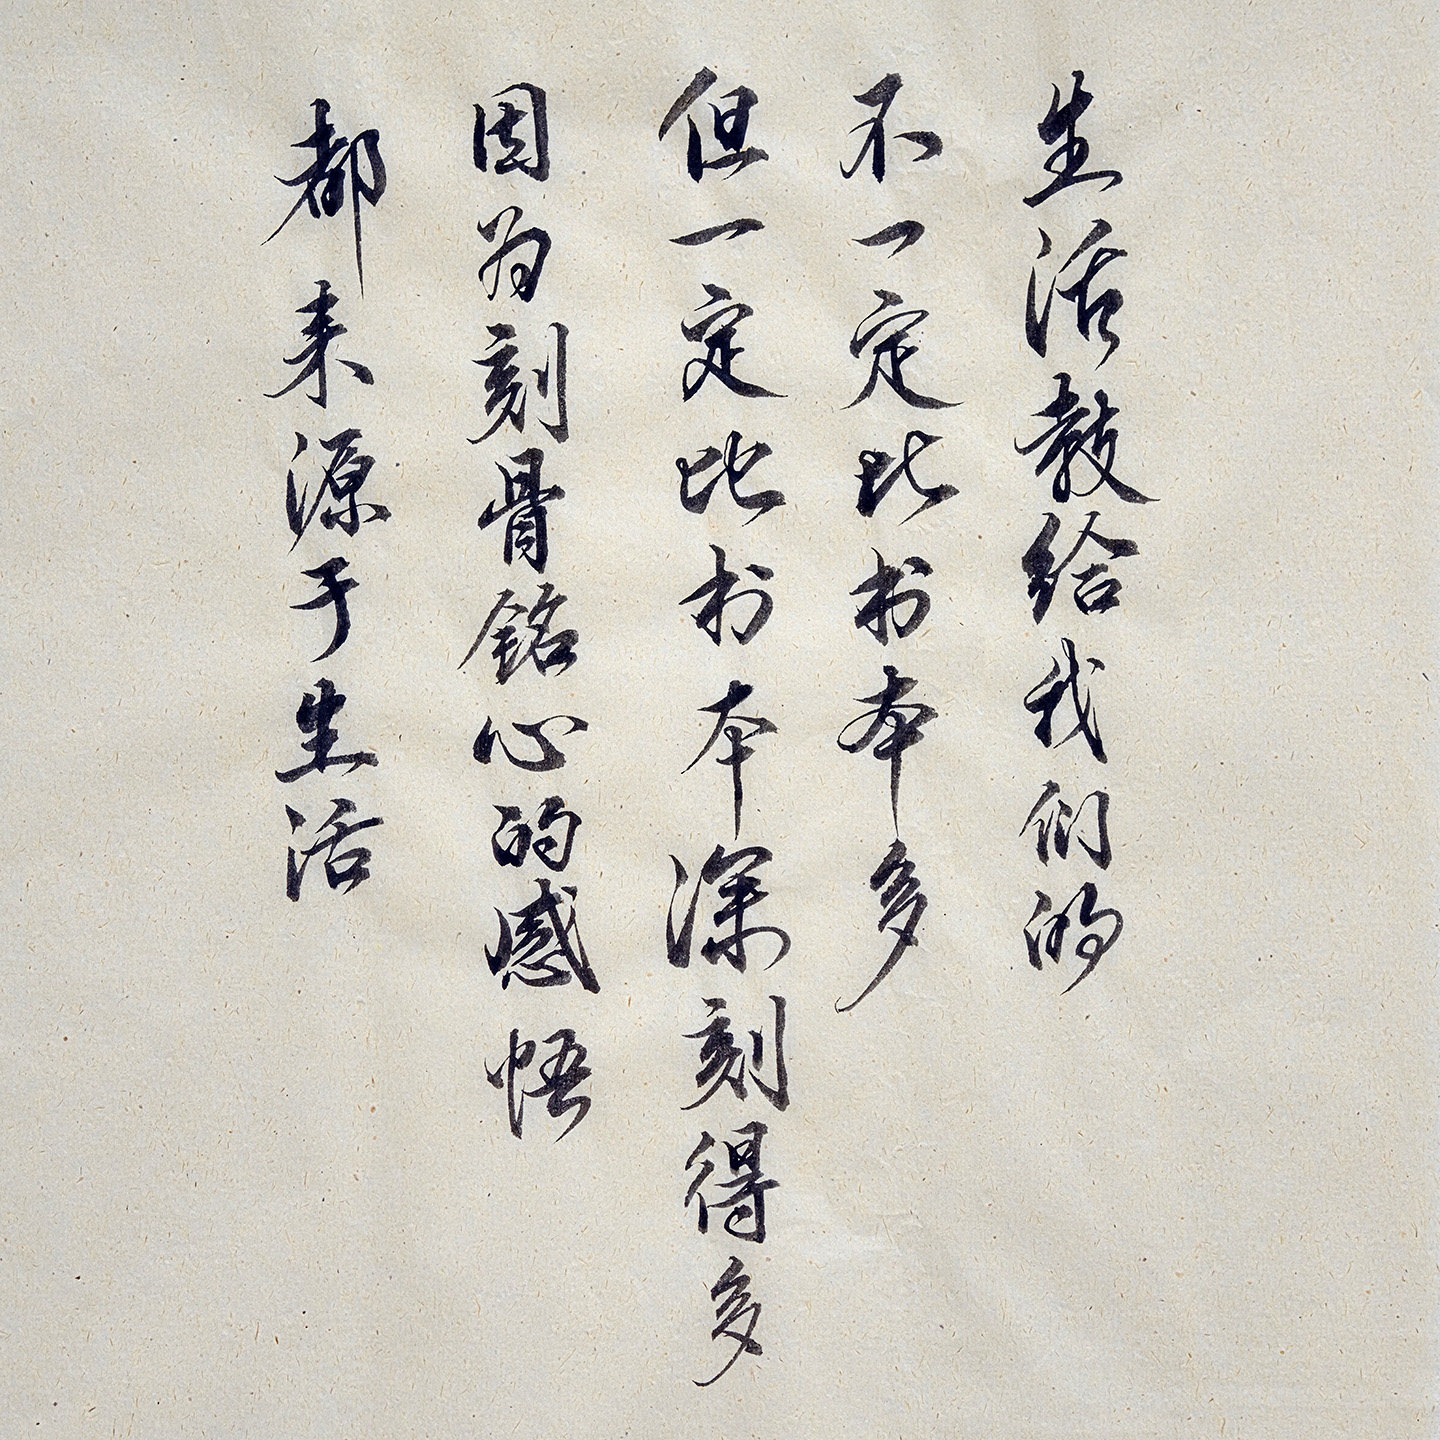 生活教给我们的
不一定比书本多
但一定比书本深刻得多
因为刻骨铭心的感悟
都来源于生活